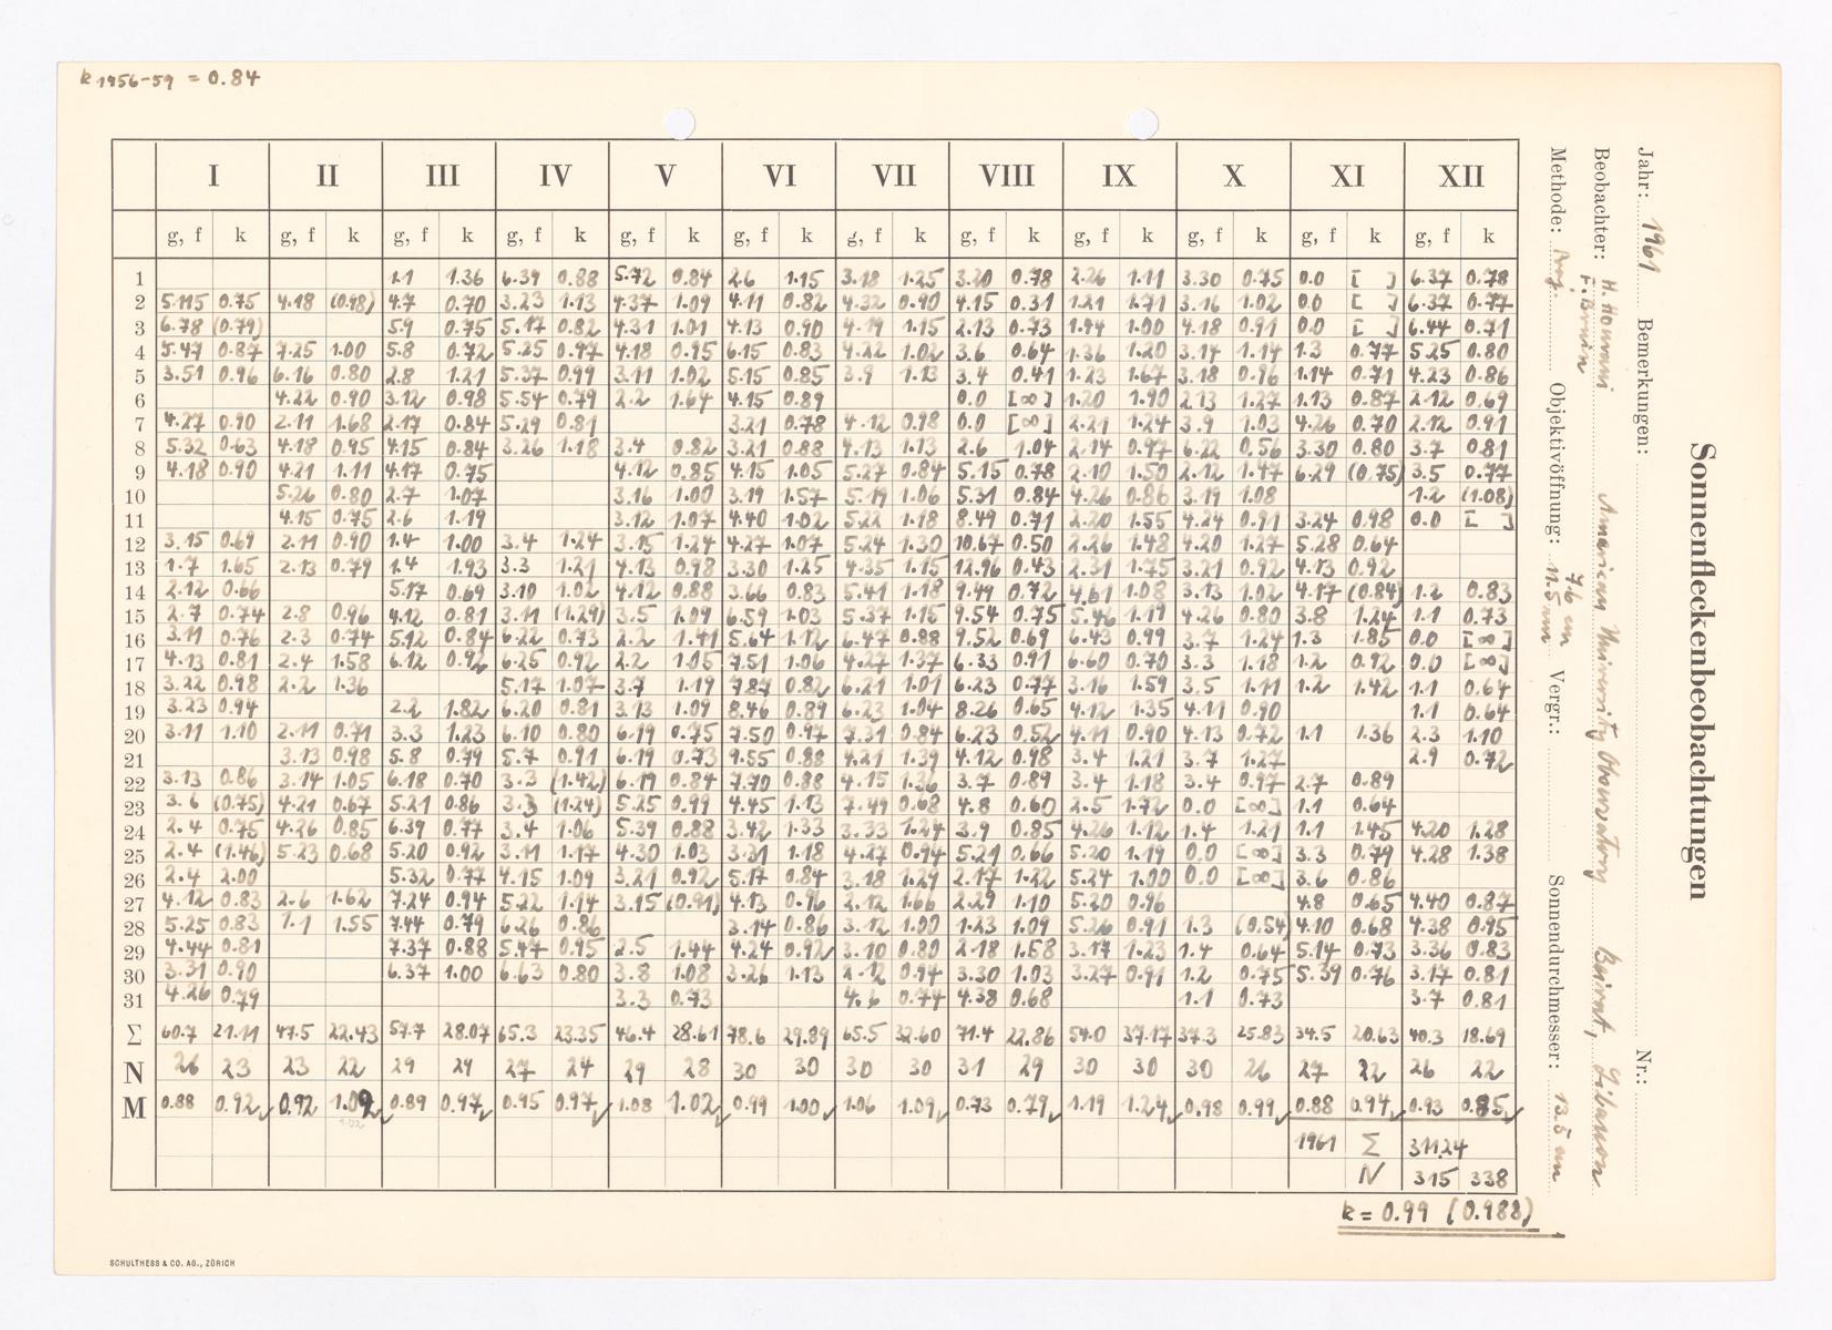 k 1956-59 = 0.84
Sonnenfleckenbeobachtungen
Jahr: 1961 Bemerkungen: Nr.:
Beobachter: H. Hourani American University Observatory Beirut, Libanon
F. Bruin
Methode: Proj. Objektivöffnung: 11.5 cm Vergr.: Sonnendurchmesser: 13.5 cm
I II III IV V VI VII VIII IX X XI XII
g, f k g, f k g, f k g, f k g, f k g, f k g, f k g, f k g, f k g, f k g, f k g, f k
1 1.1 1.36 6.39 0.88 5.72 0.84 2.6 1.15 3.18 1.25 3.20 0.78 2.26 1.11 3.30 0.75 0.0 [ ] 6.37 0.78
2 5.115 0.75 4.18 (0.98) 4.7 0.70 3.23 1.13 4.37 1.09 4.11 0.82 4.32 0.90 4.15 0.31 1.21 1.71 3.16 1.02 0.0 [ ] 6.37 0.77
3 6.78 (0.79) 5.9 0.75 5.17 0.82 4.31 1.01 4.13 0.90 4.19 1.15 2.13 0.73 1.94 1.00 4.18 0.91 0.0 [ ] 6.44 0.71
4 5.47 0.87 7.25 1.00 5.8 0.72 5.25 0.97 4.18 0.95 6.15 0.83 4.22 1.02 3.6 0.64 1.36 1.20 3.17 1.14 1.3 0.77 5.25 0.80
5 3.51 0.96 6.16 0.80 2.8 1.21 5.37 0.99 3.11 1.02 5.15 0.85 3.9 1.13 3.4 0.41 1.23 1.67 3.18 0.96 1.14 0.71 4.23 0.86
6 4.22 0.90 3.12 0.98 5.54 0.79 2.2 1.64 4.15 0.89 0.0 [∞] 1.20 1.90 2.13 1.27 1.13 0.87 2.12 0.69
7 4.27 0.90 2.11 1.68 2.17 0.84 5.29 0.81 3.21 0.78 4.12 0.98 0.0 [∞] 2.21 1.24 3.9 1.03 4.26 0.70 2.12 0.91
8 5.32 0.63 4.18 0.95 4.15 0.84 3.26 1.18 3.4 0.82 3.21 0.88 4.13 1.13 2.6 1.04 2.14 0.97 6.22 0.56 3.30 0.80 3.7 0.81
9 4.18 0.90 4.21 1.11 4.17 0.75 4.12 0.85 4.15 1.05 5.27 0.84 5.15 0.78 2.10 1.50 2.12 1.47 6.29 (0.75) 3.5 0.77
10 5.26 0.80 2.7 1.07 3.16 1.00 3.19 1.57 5.19 1.06 5.31 0.84 4.26 0.86 3.19 1.08 1.2 (1.08)
11 4.15 0.75 2.6 1.19 3.12 1.07 4.40 1.02 5.22 1.18 8.49 0.71 2.20 1.55 4.24 0.91 3.24 0.98 0.0 [ ]
12 3.15 0.69 2.11 0.90 1.4 1.00 3.4 1.24 3.15 1.24 4.27 1.07 5.24 1.30 10.67 0.50 2.26 1.48 4.20 1.27 5.28 0.64
13 1.7 1.65 2.13 0.79 1.4 1.93 3.3 1.21 4.13 0.98 3.30 1.25 4.35 1.15 12.96 0.43 2.31 1.75 3.21 0.92 4.13 0.92
14 2.12 0.66 5.17 0.69 3.10 1.02 4.12 0.88 3.66 0.83 5.41 1.18 9.49 0.72 4.61 1.08 3.13 1.02 4.17 (0.84) 1.2 0.83
15 2.7 0.74 2.8 0.96 4.12 0.81 3.11 (1.29) 3.5 1.09 6.59 1.03 5.37 1.15 9.54 0.75 5.46 1.19 4.26 0.80 3.8 1.24 1.1 0.73
16 3.11 0.76 2.3 0.74 5.12 0.84 6.22 0.73 2.2 1.41 5.64 1.12 6.47 0.88 9.52 0.69 6.43 0.99 3.7 1.24 1.3 1.85 0.0 [∞]
17 4.13 0.81 2.4 1.58 6.12 0.92 6.25 0.92 2.2 1.05 7.51 1.06 4.27 1.37 6.33 0.91 6.60 0.70 3.3 1.18 1.2 0.92 0.0 [∞]
18 3.22 0.98 2.2 1.36 5.17 1.07 3.7 1.19 7.87 0.82 6.21 1.01 6.23 0.77 3.16 1.59 3.5 1.11 1.2 1.42 1.1 0.64
19 3.23 0.94 2.2 1.82 6.20 0.81 3.13 1.09 8.46 0.89 6.23 1.04 8.26 0.65 4.12 1.35 4.11 0.90 1.1 0.64
20 3.11 1.10 2.11 0.71 3.3 1.23 6.10 0.80 6.19 0.75 7.50 0.97 7.31 0.84 6.23 0.52 4.11 0.90 4.13 0.72 1.1 1.36 2.3 1.10
21 3.13 0.98 5.8 0.79 5.7 0.91 6.19 0.73 9.55 0.88 4.21 1.39 4.12 0.98 3.4 1.21 3.7 1.27 2.9 0.72
22 3.13 0.86 3.14 1.05 6.18 0.70 3.3 (1.42) 6.19 0.84 7.70 0.88 4.15 1.36 3.7 0.89 3.4 1.18 3.4 0.97 2.7 0.89
23 3.6 (0.75) 4.21 0.67 5.21 0.86 3.3 (1.24) 5.25 0.99 4.45 1.13 7.49 0.68 4.8 0.60 2.5 1.72 0.0 [∞] 1.1 0.64
24 2.4 0.75 4.26 0.85 6.39 0.77 3.4 1.06 5.39 0.88 3.42 1.33 3.33 1.24 3.9 0.85 4.26 1.12 1.4 1.21 1.1 1.45 4.20 1.28
25 2.4 (1.46) 5.23 0.68 5.20 0.92 3.11 1.17 4.30 1.03 3.31 1.18 4.27 0.94 5.21 0.66 5.20 1.19 0.0 [∞] 3.3 0.79 4.28 1.38
26 2.4 2.00 5.32 0.77 4.15 1.09 3.21 0.92 5.17 0.84 3.18 1.29 2.17 1.22 5.24 1.00 0.0 [∞] 3.6 0.86
27 4.12 0.83 2.6 1.62 7.24 0.94 5.22 1.14 3.15 (0.91) 4.13 0.96 2.12 1.66 2.29 1.10 5.20 0.96 4.8 0.65 4.40 0.87
28 5.25 0.83 1.1 1.55 7.44 0.79 6.26 0.86 3.14 0.86 3.12 1.00 1.23 1.09 5.26 0.91 1.3 (0.54) 4.10 0.68 4.38 0.95
29 4.44 0.81 7.37 0.88 5.47 0.95 2.5 1.44 4.24 0.92 3.10 0.80 2.18 1.58 3.17 1.23 1.4 0.64 5.14 0.73 3.36 0.83
30 3.31 0.90 6.37 1.00 6.63 0.80 3.8 1.08 3.26 1.13 2.12 0.94 3.30 1.03 3.27 0.91 1.2 0.75 5.39 0.76 3.17 0.81
31 4.26 0.79 3.3 0.73 4.6 0.74 4.38 0.68 1.1 0.73 3.7 0.81
Σ 60.7 21.11 47.5 22.43 57.7 28.07 65.3 23.35 46.4 28.61 78.6 29.89 65.5 32.60 71.4 22.86 54.0 37.17 37.3 25.83 34.5 20.63 40.3 18.69
N 26 23 23 22 29 29 27 24 29 28 30 30 30 30 31 29 30 30 30 26 27 22 26 22
M 0.88 0.92 0.92 1.02 0.89 0.97 0.95 0.97 1.08 1.02 0.99 1.00 1.06 1.09 0.73 0.79 1.19 1.24 0.98 0.99 0.88 0.94 0.93 0.85
1.02
1961 Σ 311.24
N 315 338
k = 0.99 (0.988)
SCHULTHESS & CO. AG., ZÜRICH